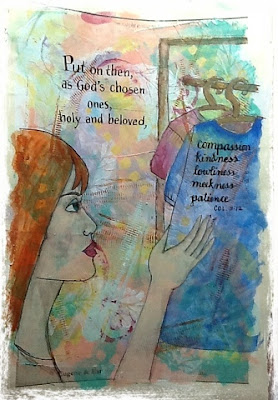 Put on then,
as God's chosen
ones,
holy and beloved,
compassion
kindness
lowliness
meekness
patience
COL 3:12